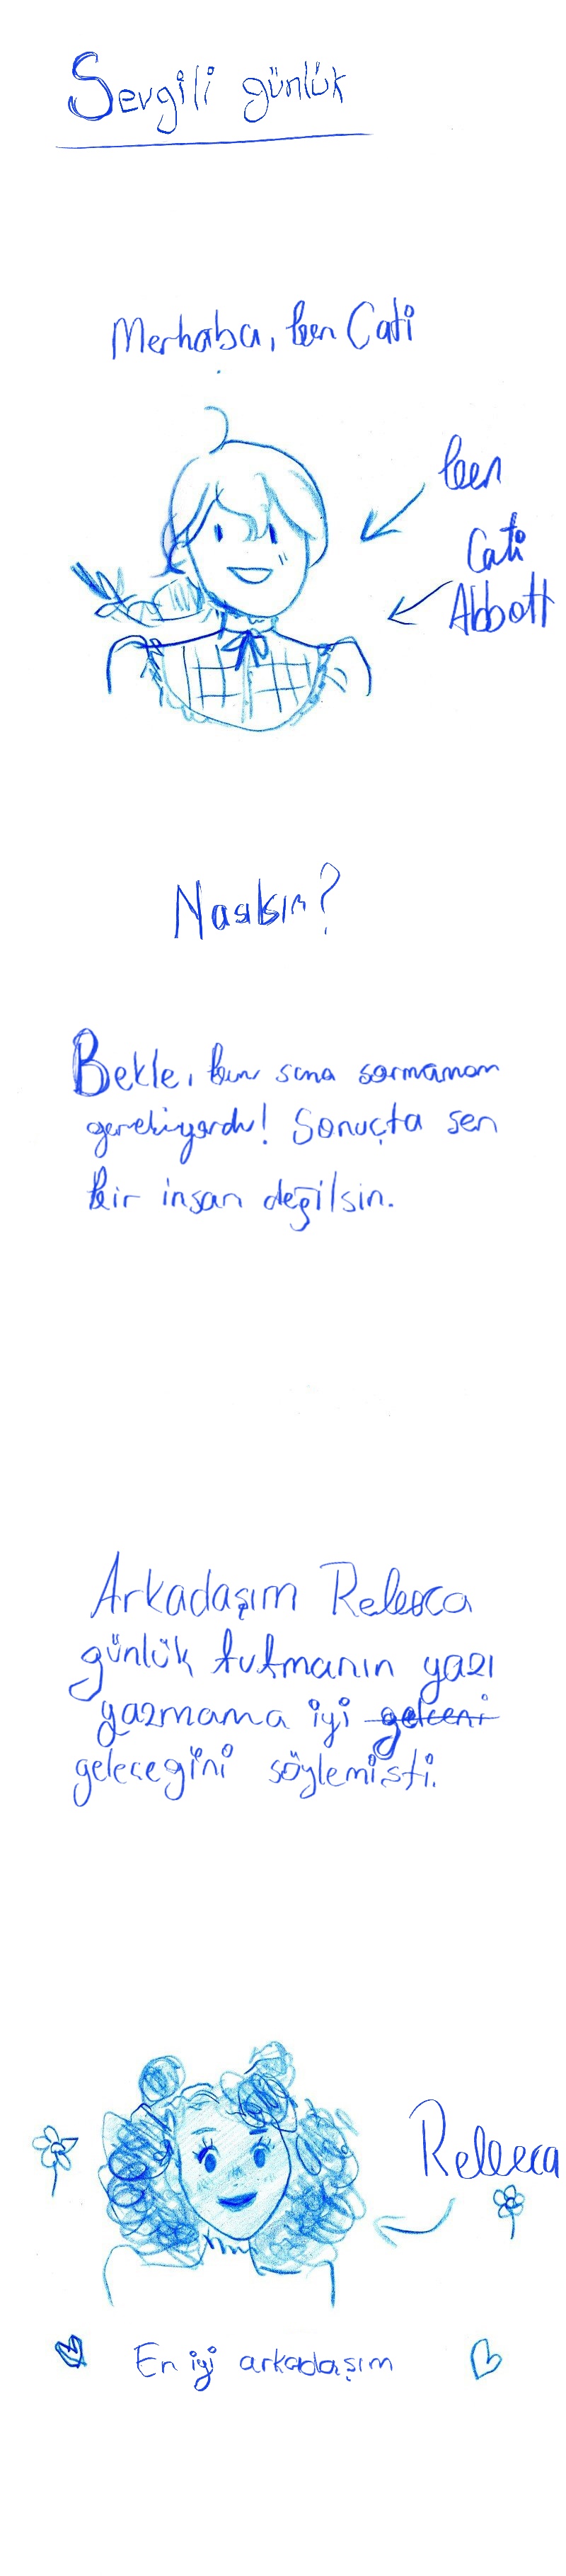 Sevgili günlük
Merhaba, ben Cati
ben
Cati
Abbott
Nasılsın?
Bekle, bunu sana sormamam
gerekiyordu! Sonuçta sen
bir insan değilsin.
Arkadaşım Rebecca
günlük tutmanın yazı
yazmama iyi
geleceğini söylemişti.
Rebecca
En iyi arkadaşım